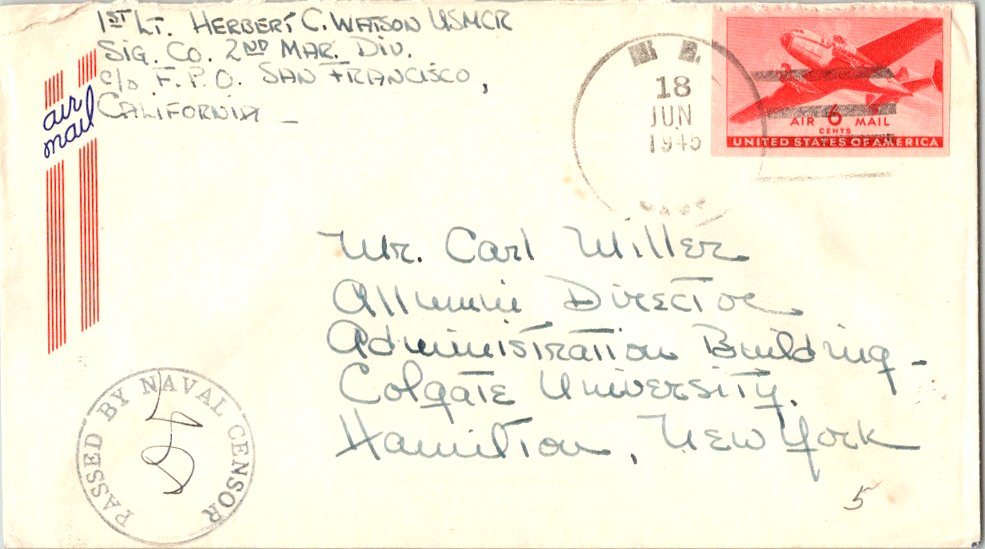 1ST LT. HERBERT C. WATSON USMCR
SIG. CO. 2ND MAR. DIV.
c/o F.P.O. SAN FRANCISCO,
CALIFORNIA -
air
mail
18
JUN
1945
AIR 6 MAIL
CENTS
UNITED STATES OF AMERICA
Mr. Carl Miller
Allumnie Director
Administration Building -
Colgate University.
Hamilton, New York
PASSED BY NAVAL CENSOR
5